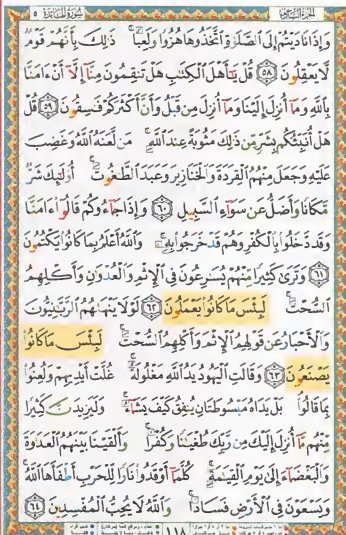 الجزء السادس سورة المائدة ٥
وَإِذَا نَادَيْتُمْ إِلَى الصَّلَوٰةِ اتَّخَذُوهَا هُزُوًا وَلَعِبًا ۚ ذَٰلِكَ بِأَنَّهُمْ قَوْمٌ
لَّا يَعْقِلُونَ ٥٨ قُلْ يَٰٓأَهْلَ الْكِتَٰبِ هَلْ تَنقِمُونَ مِنَّآ إِلَّآ أَنْ ءَامَنَّا
بِاللَّهِ وَمَآ أُنزِلَ إِلَيْنَا وَمَآ أُنزِلَ مِن قَبْلُ وَأَنَّ أَكْثَرَكُمْ فَٰسِقُونَ ٥٩ قُلْ
هَلْ أُنَبِّئُكُم بِشَرٍّ مِّن ذَٰلِكَ مَثُوبَةً عِندَ اللَّهِ ۚ مَن لَّعَنَهُ اللَّهُ وَغَضِبَ
عَلَيْهِ وَجَعَلَ مِنْهُمُ الْقِرَدَةَ وَالْخَنَازِيرَ وَعَبَدَ الطَّٰغُوتَ ۚ أُولَٰٓئِكَ شَرٌّ
مَّكَانًا وَأَضَلُّ عَن سَوَآءِ السَّبِيلِ ٦٠ وَإِذَا جَآءُوكُمْ قَالُوٓا ءَامَنَّا
وَقَد دَّخَلُوا بِالْكُفْرِ وَهُمْ قَدْ خَرَجُوا بِهِ ۚ وَاللَّهُ أَعْلَمُ بِمَا كَانُوا يَكْتُمُونَ
٦١ وَتَرَىٰ كَثِيرًا مِّنْهُمْ يُسَٰرِعُونَ فِي الْإِثْمِ وَالْعُدْوَٰنِ وَأَكْلِهِمُ
السُّحْتَ ۚ لَبِئْسَ مَا كَانُوا يَعْمَلُونَ ٦٢ لَوْلَا يَنْهَىٰهُمُ الرَّبَّٰنِيُّونَ
وَالْأَحْبَارُ عَن قَوْلِهِمُ الْإِثْمَ وَأَكْلِهِمُ السُّحْتَ ۚ لَبِئْسَ مَا كَانُوا
يَصْنَعُونَ ٦٣ وَقَالَتِ الْيَهُودُ يَدُ اللَّهِ مَغْلُولَةٌ ۚ غُلَّتْ أَيْدِيهِمْ وَلُعِنُوا
بِمَا قَالُوا ۘ بَلْ يَدَاهُ مَبْسُوطَتَانِ يُنفِقُ كَيْفَ يَشَآءُ ۚ وَلَيَزِيدَنَّ كَثِيرًا
مِّنْهُم مَّآ أُنزِلَ إِلَيْكَ مِن رَّبِّكَ طُغْيَٰنًا وَكُفْرًا ۚ وَأَلْقَيْنَا بَيْنَهُمُ الْعَدَٰوَةَ
وَالْبَغْضَآءَ إِلَىٰ يَوْمِ الْقِيَٰمَةِ ۚ كُلَّمَآ أَوْقَدُوا نَارًا لِّلْحَرْبِ أَطْفَأَهَا اللَّهُ ۚ
وَيَسْعَوْنَ فِي الْأَرْضِ فَسَادًا ۚ وَاللَّهُ لَا يُحِبُّ الْمُفْسِدِينَ ٦٤
١١٨